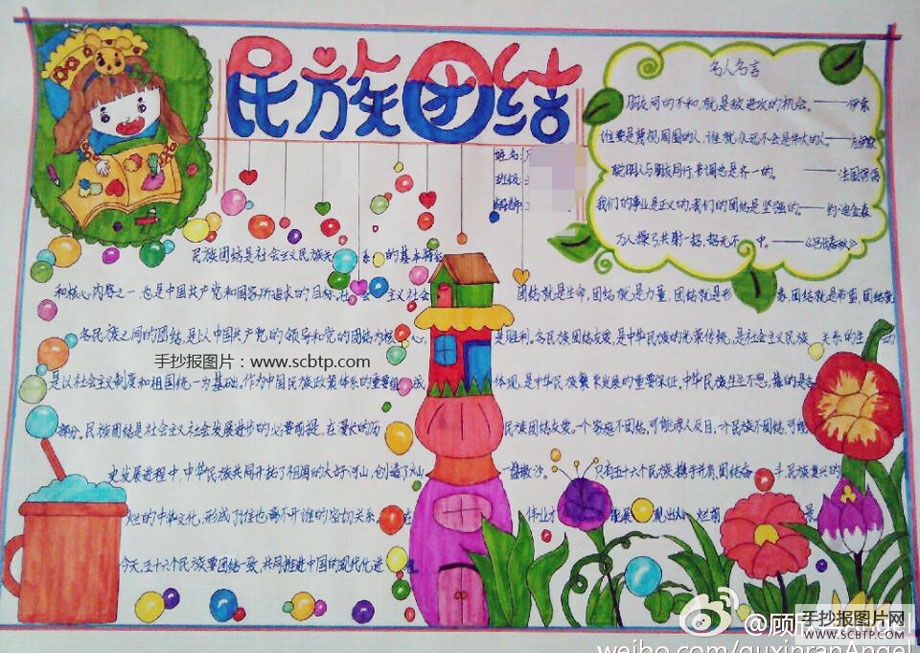 民族团结
名人名言
朋友间的不和,就是敌进攻的机会。——伊索
谁要是蔑视周围的人,谁就永远不会是伟大的人。——
聪明人与朋友同行,步调总是齐一的。——法国
我们的事业是正义的,我们的团结是坚强的。——约·迪金森
万人操弓,共射一招,招无不中。——《吕氏春秋》
姓名:
班级:
民族团结是社会主义民族关系的基本特征
和核心内容之一,也是中国共产党和国家所追求的目标,社会主义社会
各民族之间的团结,是以中国共产党的领导和党的团结为核心,
手抄报图片:www.scbtp.com
是以社会主义制度和祖国统一为基础。作为中国民族政策体系的重要组成
部分,民族团结是社会主义社会发展进步的必要前提。在漫长的历
史发展进程中,中华民族共同开拓了祖国的大好河山,创造了灿
烂的中华文化,形成了谁也离不开谁的密切关系。在
今天,五十六个民族要团结一致,共同推进中国的现代化进程
团结就是生命,团结就是力量,团结就是形象,团结就是希望,团结就
是胜利。各民族团结友爱,是中华民族的光荣传统,是社会主义民族关系的生动
体现,是中华民族繁荣发展的重要保证。中华民族生生不息,靠的是各
民族团结友爱。一个家庭不团结,可能亲人反目,一个民族不团结,可能
一盘散沙。只有五十六个民族携手并肩,团结奋斗,民族复兴的
伟业才能展现出灿烂前景。
@顾欣
weibo.com/guxinranAngel
手抄报图片网
WWW.SCBTP.COM